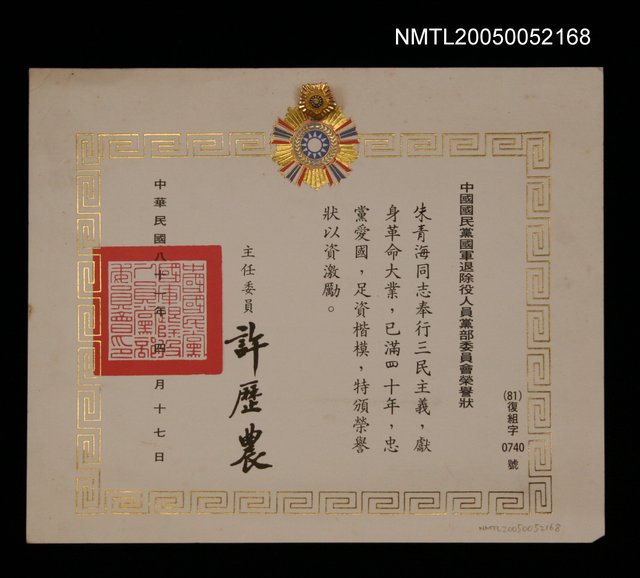 NMTL20050052168
(81)復組字0740號
中國國民黨國軍退除役人員黨部委員會榮譽狀
朱青海同志奉行三民主義，獻
身革命大業，已滿四十年，忠
黨愛國，足資楷模，特頒榮譽
狀以資激勵。
主任委員 許歷農
中華民國八十一年四月十七日
NMTL20050052168